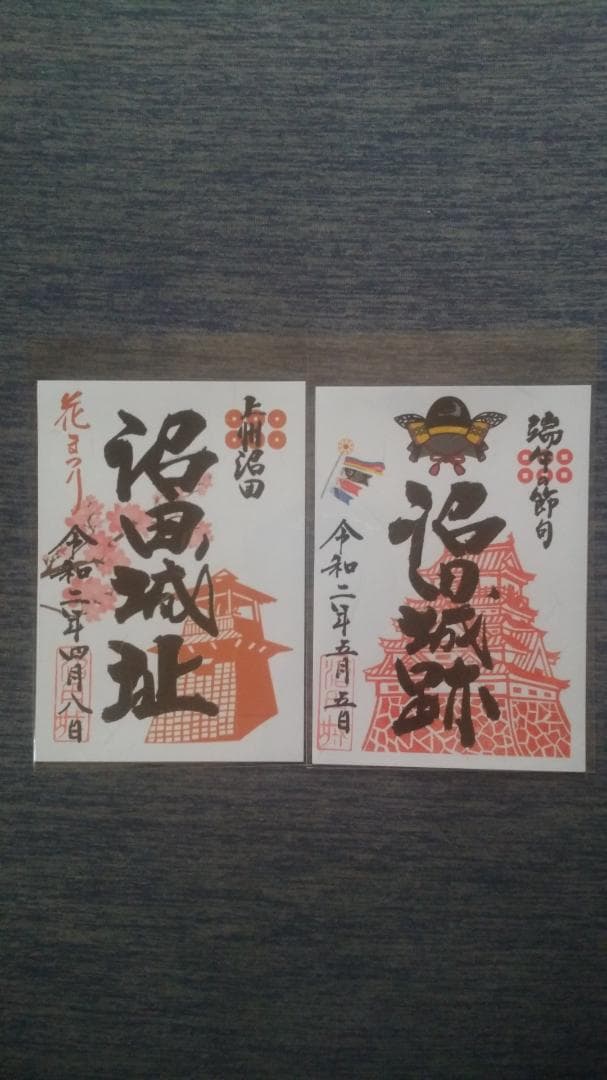 上州沼田
沼田城址
花まつり
令和二年四月八日
端午の節句
沼田城跡
令和二年五月五日